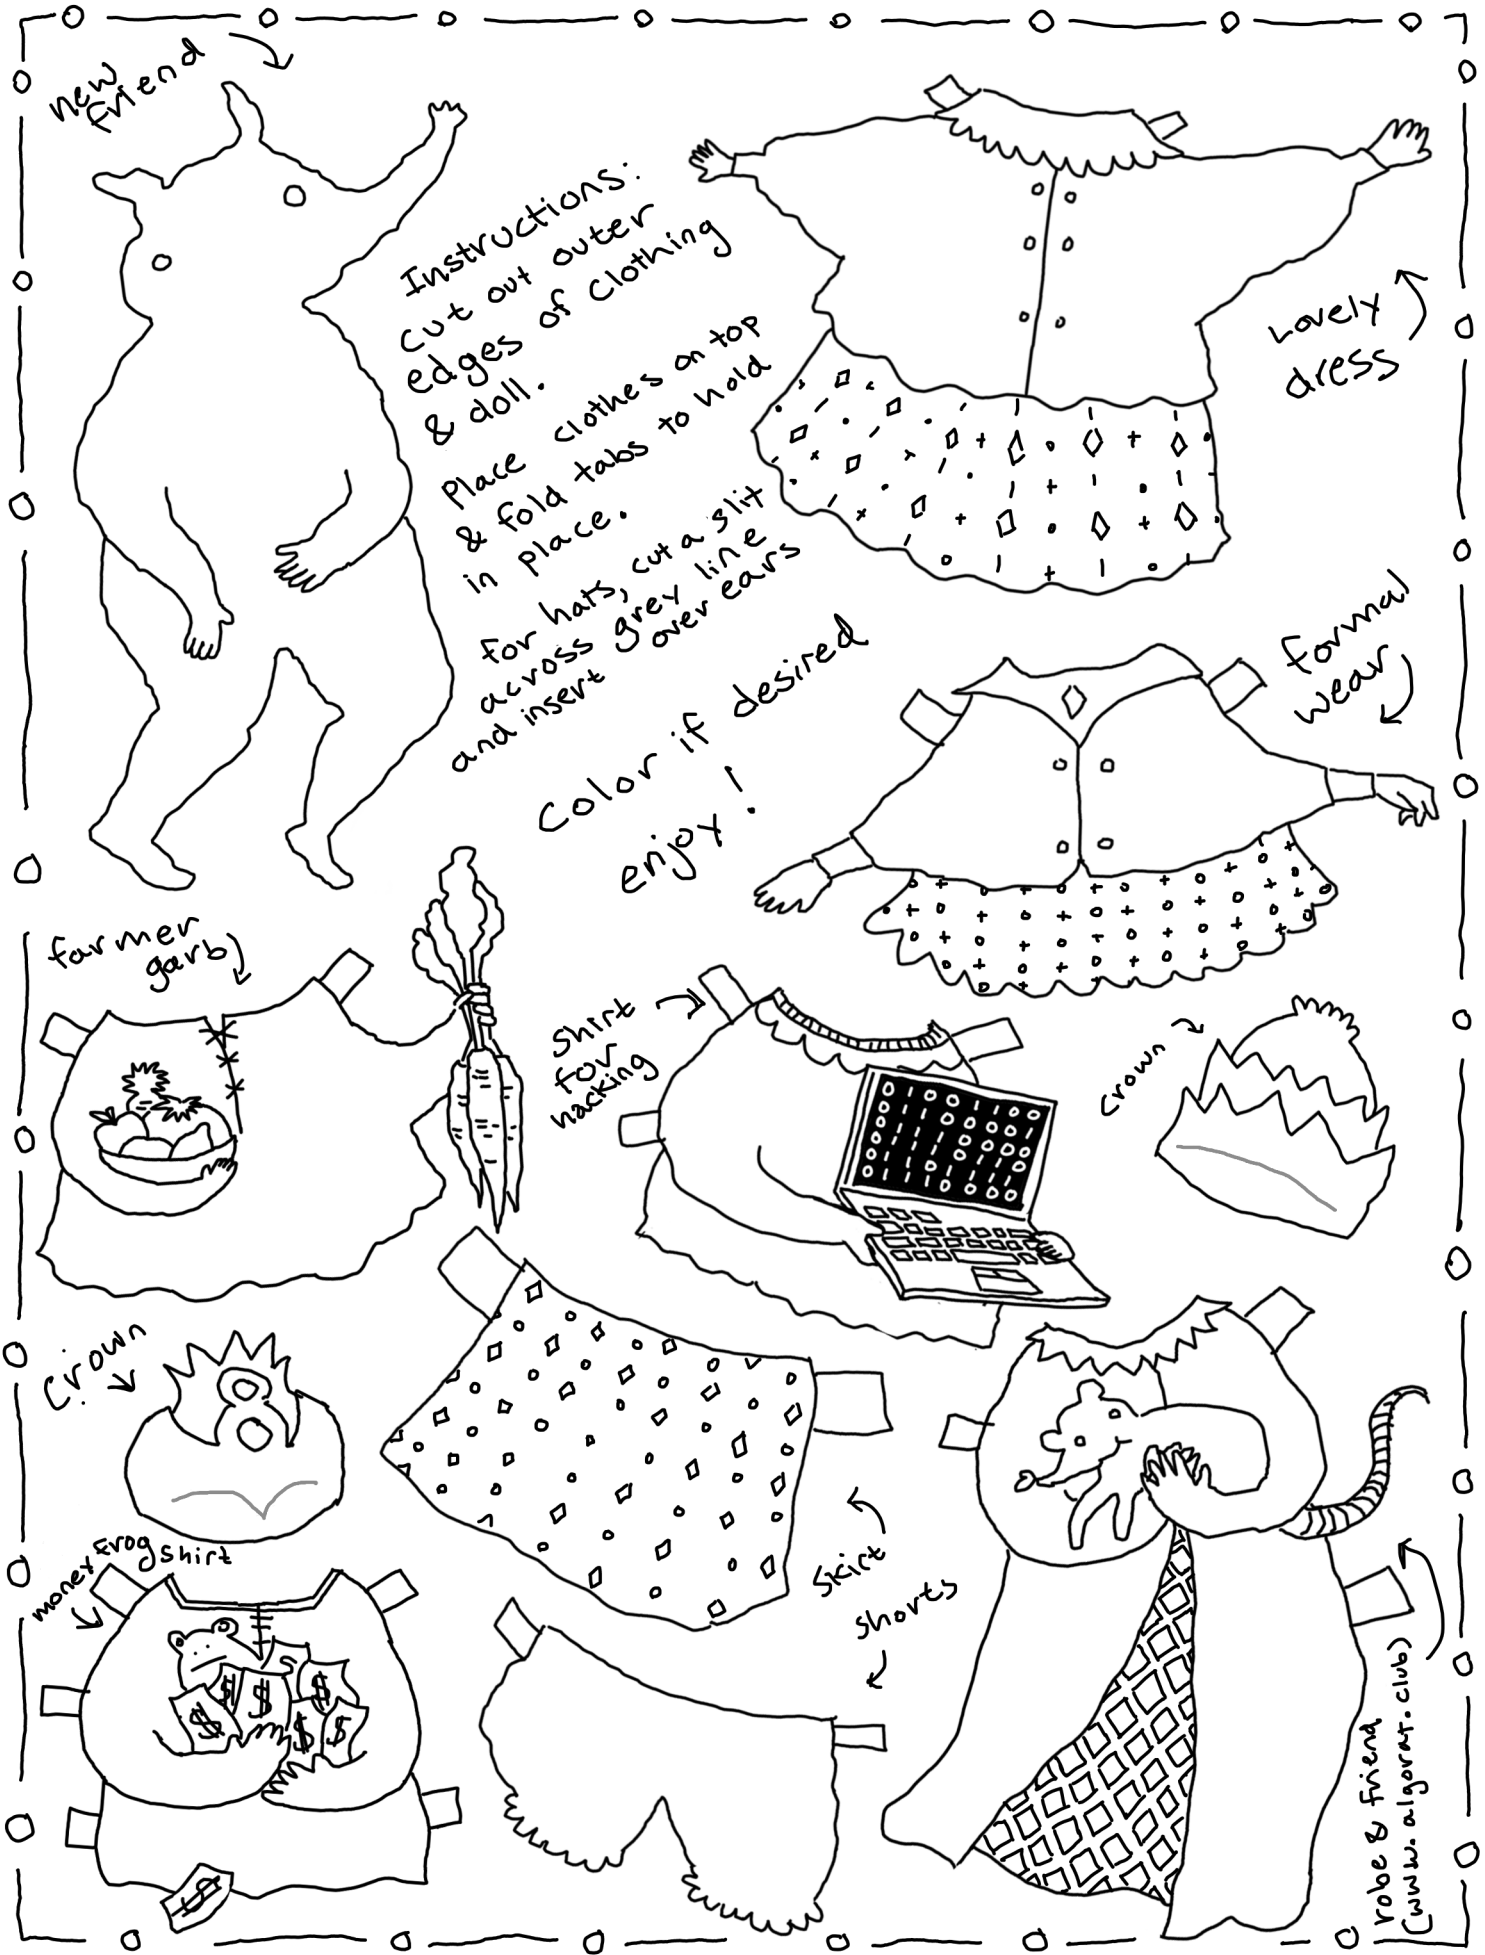 new
friend
Instructions:
cut out outer
edges of clothing
& doll.
Place clothes on top
& fold tabs to hold
in place.
for hats, cut a slit
across grey line
and insert over ears
color if desired
enjoy!
Lovely
dress
formal
wear
farmer
garb
shirt
for
hacking
crown
crown
money frog shirt
skirt
shorts
robe & friend
(www.algorat.club)
$
$
$
$
$
$
0 1 0 0 1 1 0 0